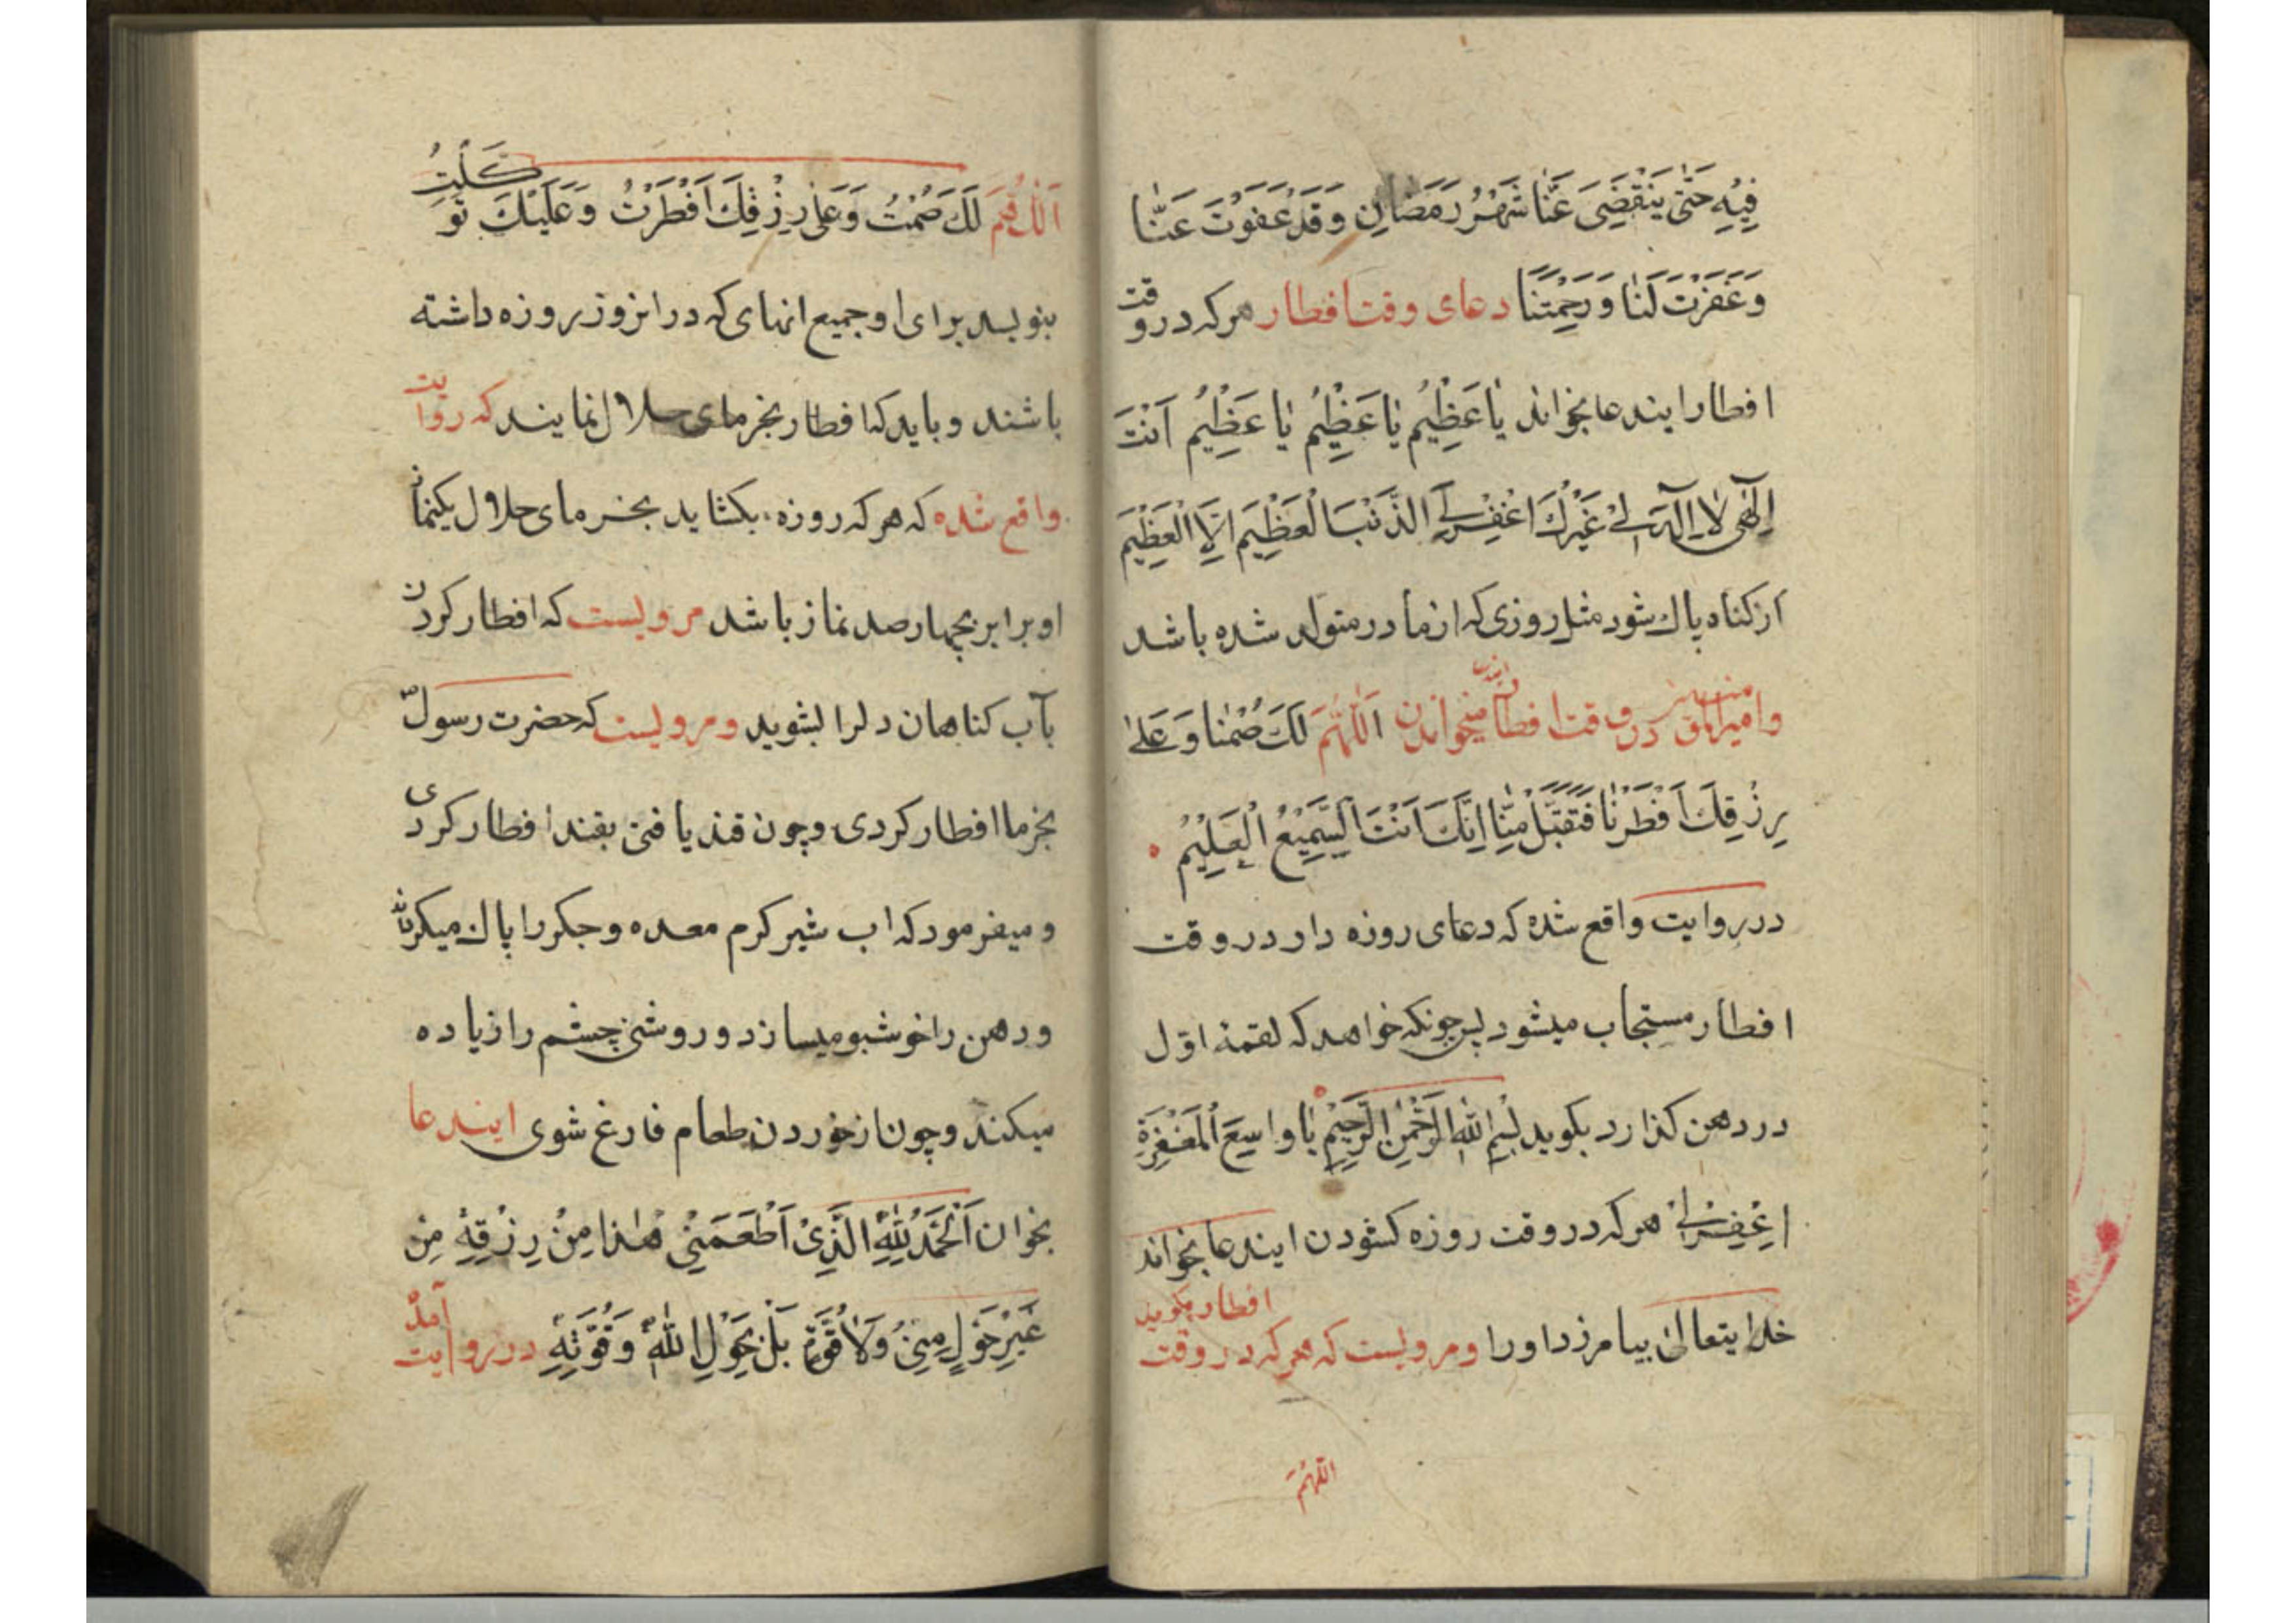 فِيهِ حَتّٰى يَنْقَضِىَ عَنَّا شَهْرُ رَمَضَانَ وَقَدْ عَفَوْتَ عَنَّا
وَغَفَرْتَ لَنَا وَرَحِمْتَنَا دعای وقت افطار هر که در وقت
افطار ایندعا بخواند يٰا عَظِيمُ يٰا عَظِيمُ يٰا عَظِيمُ اَنْتَ
اِلٰهِى لٰا اِلٰهَ لِىْ غَيْرُكَ اغْفِرْ لِىَ الذَّنْبَ الْعَظِيمَ اِلَّا الْعَظِيمَ
از کناه پاك شود مثل روزی که از مادر متولد شده باشد
وامیرالمؤمنین در وقت افطار میخواندند اَللّٰهُمَّ لَكَ صُمْنٰا وَعَلىٰ
رِزْقِكَ اَفْطَرْنٰا فَتَقَبَّلْ مِنَّا اِنَّكَ اَنْتَ السَّمِيعُ الْعَلِيمُ
در روایت واقع شده که دعای روزه دار در وقت
افطار مستجاب میشود پس چونکه خواهد که لقمهٔ اوّل
در دهن کذارد بکوید بِسْمِ اللّٰهِ الرَّحْمٰنِ الرَّحِيمِ يٰا وٰاسِعَ الْمَغْفِرَةِ
اِغْفِرْ لِىْ هر که در وقت روزه کشودن ایندعا بخواند
خدایتعالی بیامرزد اورا ومرویست که هر که در وقت افطار بکوید
اللّهُمَّ
اَللّٰهُمَّ لَكَ صُمْتُ وَعَلىٰ رِزْقِكَ اَفْطَرْتُ وَعَلَيْكَ تَوَكَّلْتُ
بنویسد برای او جمیع انهای که در انروز روزه داشته
باشند و باید که افطار بخرمای حلال نمایند که روایت
واقع شده که هر که روزه بکشاید بخرمای حلال یکنماز
او برابر بچهارصد نماز باشد مرویست که افطار کردن
بآب کناهان دلرا بشوید ومرویست که حضرت رسول ص
بخرما افطار کردی و چون قند یافتی بقند افطار کردی
و میفرمود که اب شیر کرم معده و جکر را پاك میکرداند
و دهن را خوشبو میسازد و روشنی چشم را زیاده
میکند و چون از خوردن طعام فارغ شوی ایندعا
بخوان اَلْحَمْدُ لِلّٰهِ الَّذِىْ اَطْعَمَنِىْ هٰذٰا مِنْ رِزْقِهٖ مِنْ
غَيْرِ حَوْلٍ مِنِّىْ وَلٰا قُوَّةٍ بَلْ بِحَوْلِ اللّٰهِ وَقُوَّتِهٖ در روایت آمده